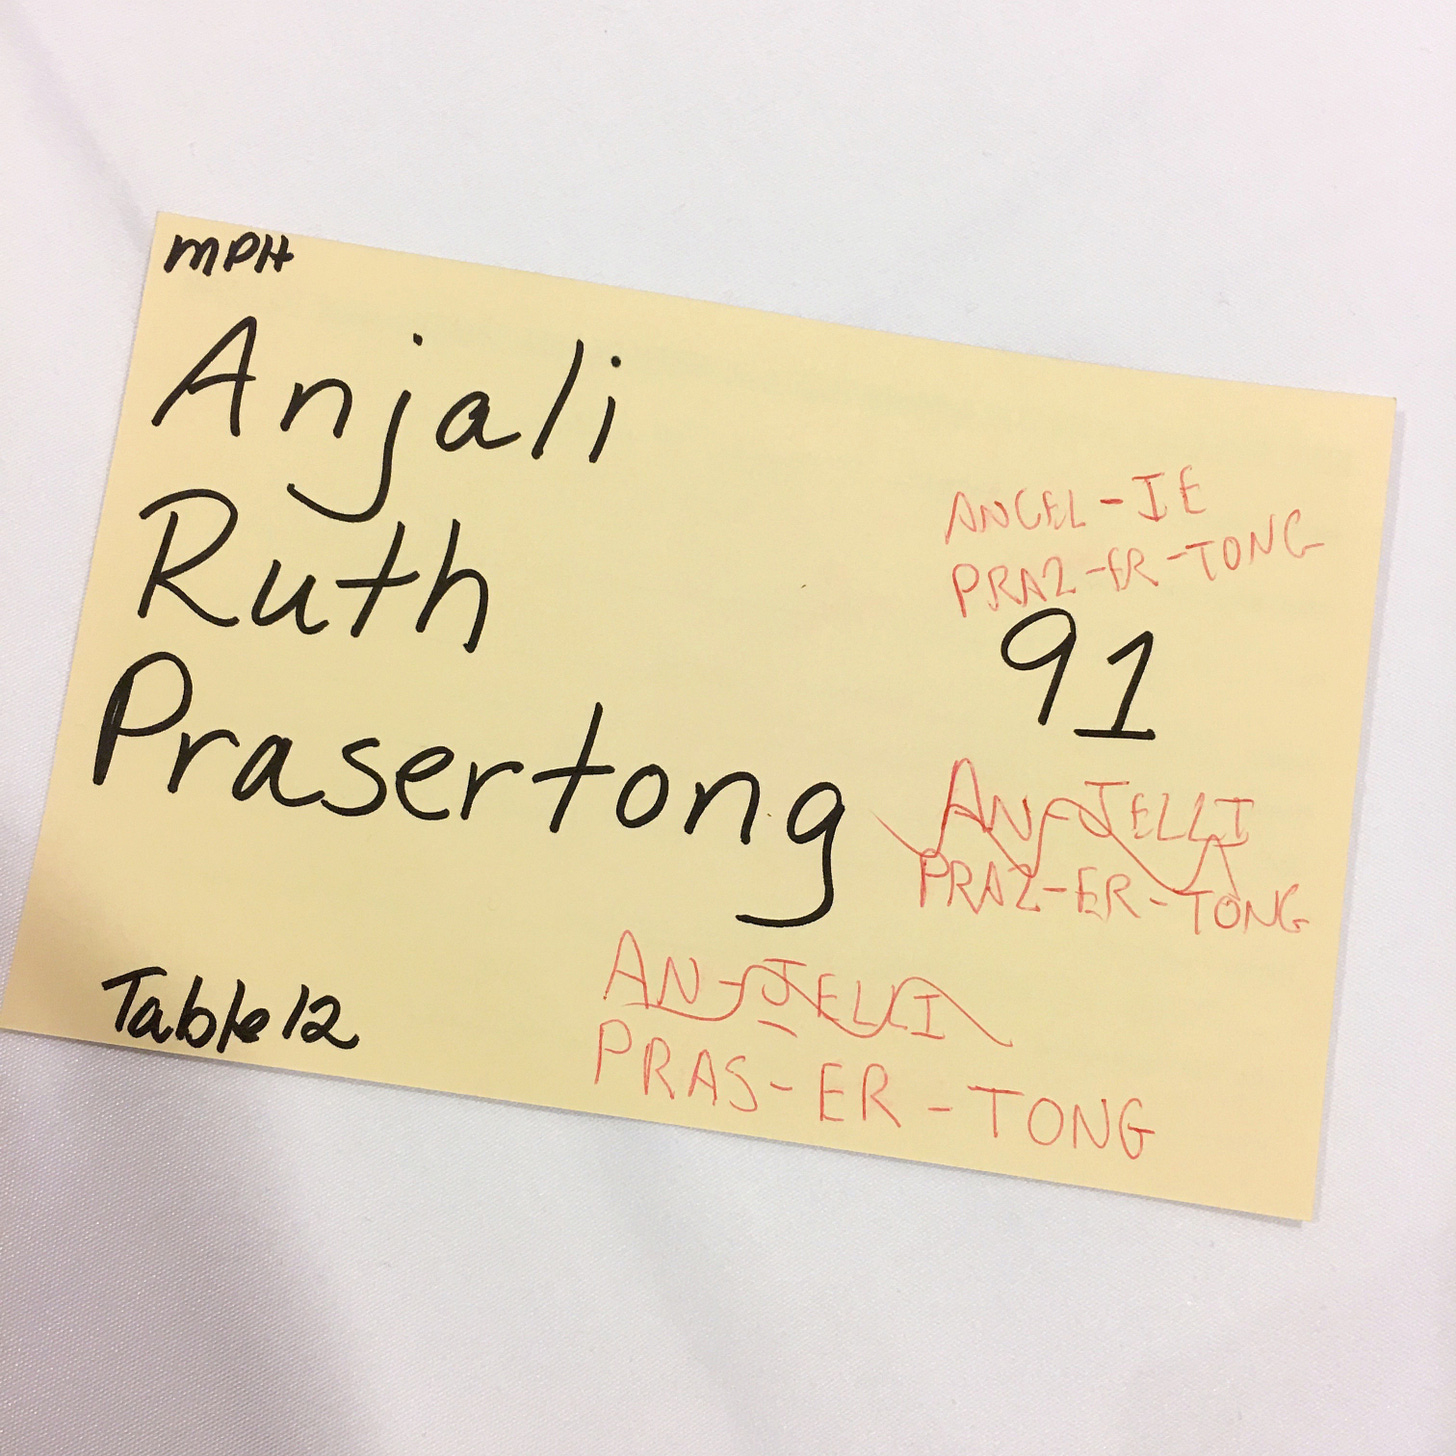 MPH
Anjali
Ruth
Prasertong
Table 12
ANGEL-IE
PRAZ-ER-TONG
91
AN-JELLI
PRAZ-ER-TONG
AN-JELLI
PRAS-ER-TONG